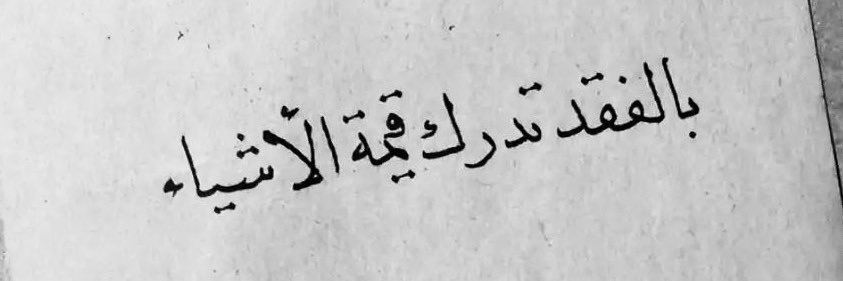 بالفقد تدرك قيمة الأشياء